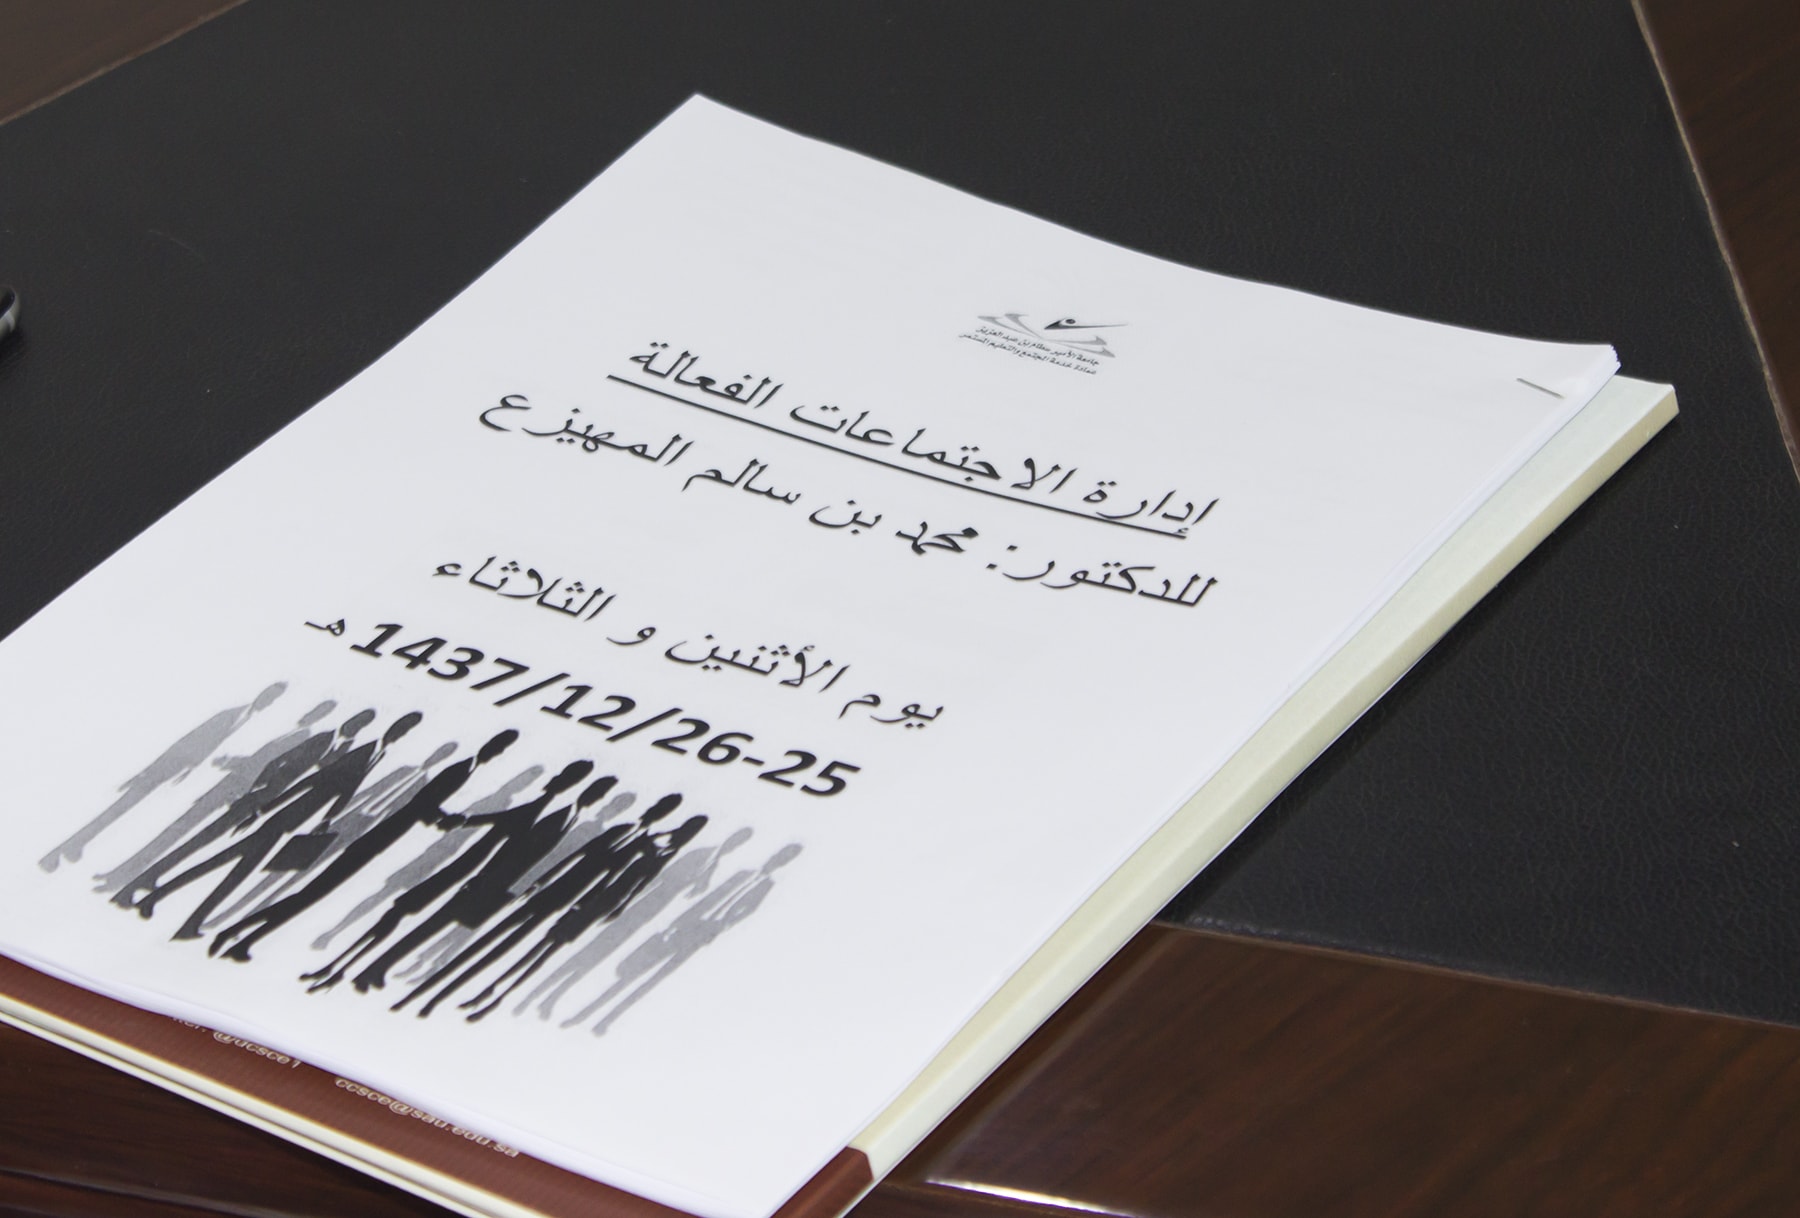 جامعة الأمير سطام بن عبد العزيز
عمادة خدمة المجتمع والتعليم المستمر
إدارة الاجتماعات الفعالة
للدكتور: محمد بن سالم المهيزع
يوم الأثنين و الثلاثاء
25-26/12/1437 هـ
@dcsce1
ccsce@sau.edu.sa